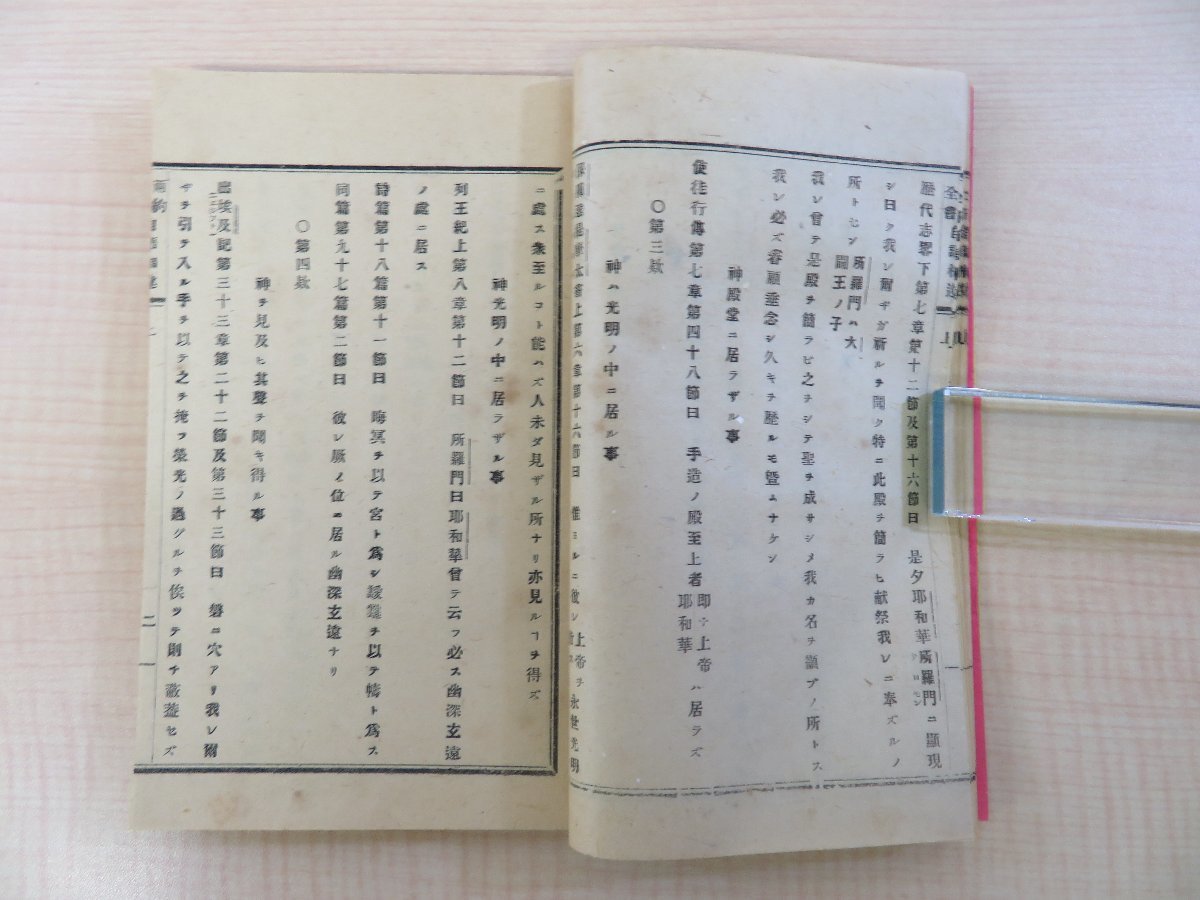 歴代志畧下第七章第十二節及第十六節曰 是夕耶和華所羅門ニ顯現
シ曰ク我レ爾ギガ祈ルヲ聞ク特ニ此殿ヲ簡ラヒ献祭我レニ奉ズルノ
所トセン 所羅門ハ大闢王ノ子
我レ曾テ是殿ヲ簡ラビ之ヲシテ聖ヲ成サシメ我カ名ヲ顯ブノ所トス
我レ必ズ眷顧垂念シ久キヲ歴ルモ暨ムナケン
神殿堂ニ居ラザル事
使徒行傳第七章第四十八節曰 手造ノ殿至上者 即チ上帝耶和華 ハ居ラズ
〇第三欵
神ハ光明ノ中ニ居ル事
上第六章第十六節曰 惟
ニ處ス衆至ルコト能ハズ人未ダ見ザル所ナリ亦見ルコヲ得ズ
神光明ノ中ニ居ラザル事
列王紀上第八章第十二節曰 所羅門曰耶和華曾テ云フ必ス幽深玄遠
ノ處ニ居ス
詩篇第十八篇第十一節曰 晦冥ヲ以テ宮ト爲シ ヲ以テ幬ト爲ス
同篇第九十七篇第二節曰 彼レ ノ位ニ居ル幽深玄遠ナリ
〇第四欵
神ヲ見及ヒ其聲ヲ聞キ得ル事
出埃及記第三十三章第二十二節及第三十三節曰 磐ニ穴アリ我レ爾
ヂヲ引テ入ル手ヲ以テ之ヲ掩フ榮光ノ過グルヲ俟ツテ則チ蔽葢セズ
二